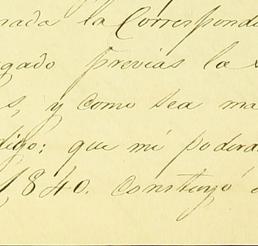 nada la Correspondi
gado previas la
s, y como sea ma
digo: que mi podera
1,840. construyó